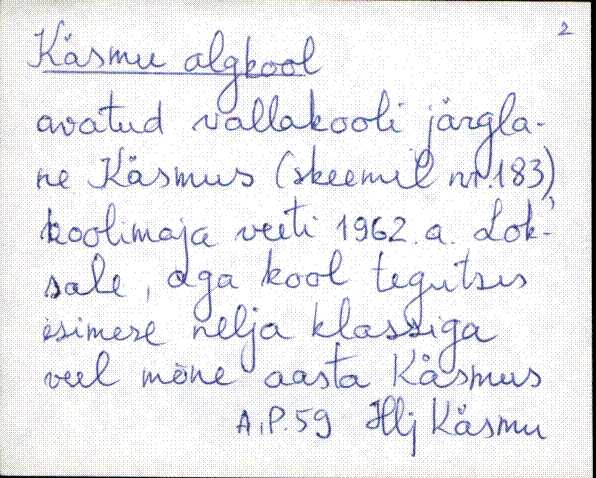 2
Käsmu algkool
avatud vallakooli järgla-
ne Käsmus (skeemil nr.183),
koolimaja veeti 1962.a. Lok-
sale, aga kool tegutses
esimese nelja klassiga
veel mõne aasta Käsmus
A.P.59 Hlj Käsmu